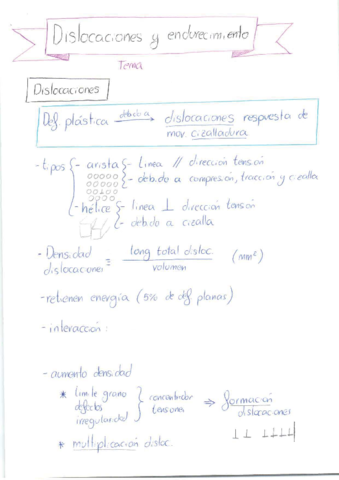 Dislocaciones y endurecimiento
Tema
Dislocaciones
Def plástica debida a → dislocaciones respuesta de
mov. cizalladura
- tipos { - arista { - linea // dirección tensión
- debido a compresión, tracción y cizalla
- hélice { - linea ⊥ dirección tensión
- debido a cizalla
- Densidad dislocaciones = long total disloc. / volumen (mm²)
- retienen energía (5% de def planas)
- interacción:
- aumento densidad
* limite grano
defectos
irregularidad } concentrador tensiones ⇒ formación dislocaciones
⊥⊥ ⊥⊥⊥⊥
* multiplicación disloc.